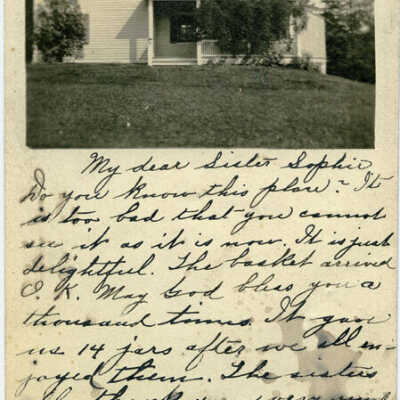 My dear Sister Sophie
Do you know this place? It
is too bad that you cannot
see it as it is now. It is just
delightful. The basket arrived
O. K. May God bless you a
thousand times. It gave
us 14 jars after we all en-
joyed them. The sisters
thank you very much